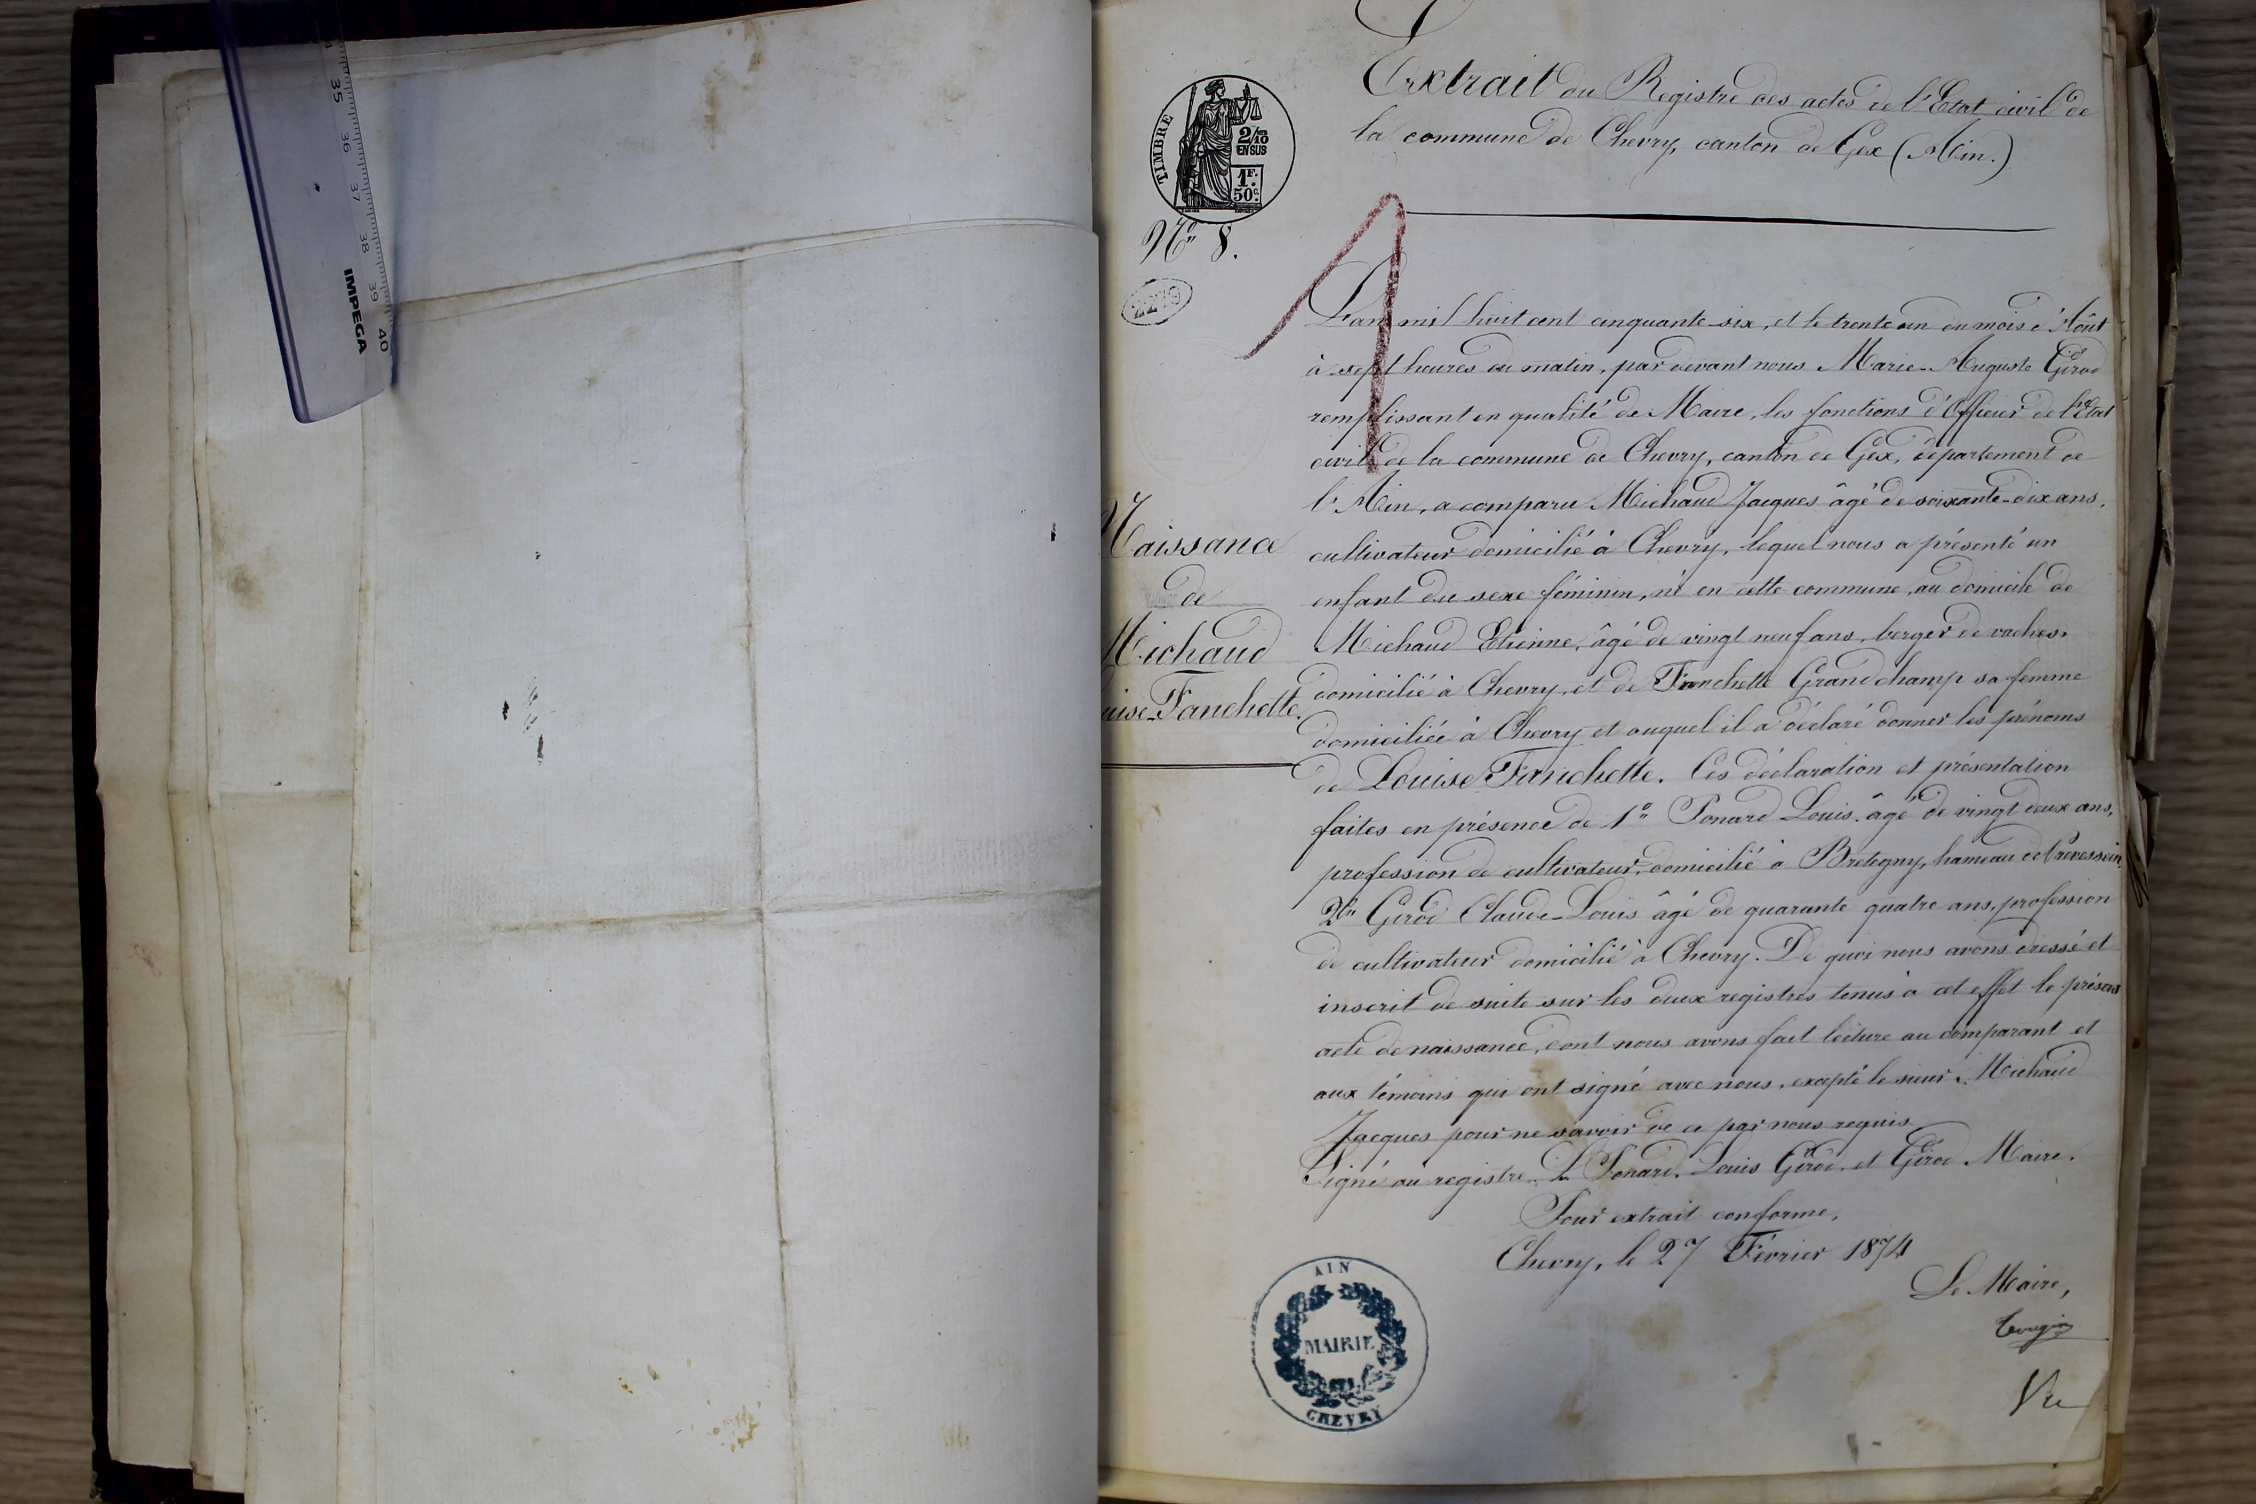 35 36 37 38 39 40
IMPEGA
Extrait du Registre des actes de l'Etat civil de
la commune de Chevry, canton de Gex (Ain.)
TIMBRE
2/10
EN SUS
1F.
50c.
N° 8.
2279
Naissance
de
Michaud
uise-Fanchette.
L'an mil huit cent cinquante-six, et le trente un du mois d'Aôut
à sept heures du matin, par devant nous Marie-Auguste Girod
remplissant en qualité de Maire, les fonctions d'Officier de l'Etat
civil de la commune de Chevry, canton de Gex, département de
l'Ain, a comparu Michaud Jacques âgé de soixante-dix ans,
cultivateur domicilié à Chevry, lequel nous a présenté un
enfant du sexe féminin, né en cette commune, au domicile de
Michaud Etienne, âgé de vingt neuf ans, berger de vaches,
domicilié à Chevry, et de Fanchette Grandchamp sa femme
domiciliée à Chevry et auquel il a déclaré donner les prénoms
de Louise Fanchette. Ces déclaration et présentation
faites en présence de 1° Ponard Louis, âgé de vingt deux ans,
profession de cultivateur, domicilié à Bretegny, hameau de Prevessin,
2° Girod Claude-Louis âgé de quarante quatre ans, profession
de cultivateur domicilié à Chevry. De quoi nous avons dressé et
inscrit de suite sur les deux registres tenus à cet effet le présent
acte de naissance, dont nous avons fait lecture au comparant et
aux témoins qui ont signé avec nous, excepté le sieur Michaud
Jacques pour ne savoir de ce par nous requis.
Signé au registre. L Ponard, Louis Girod, et Girod Maire.
Pour extrait conforme,
Chevry, le 27 Février 1874
Le Maire,
Vu
AIN
MAIRIE
CHEVRY